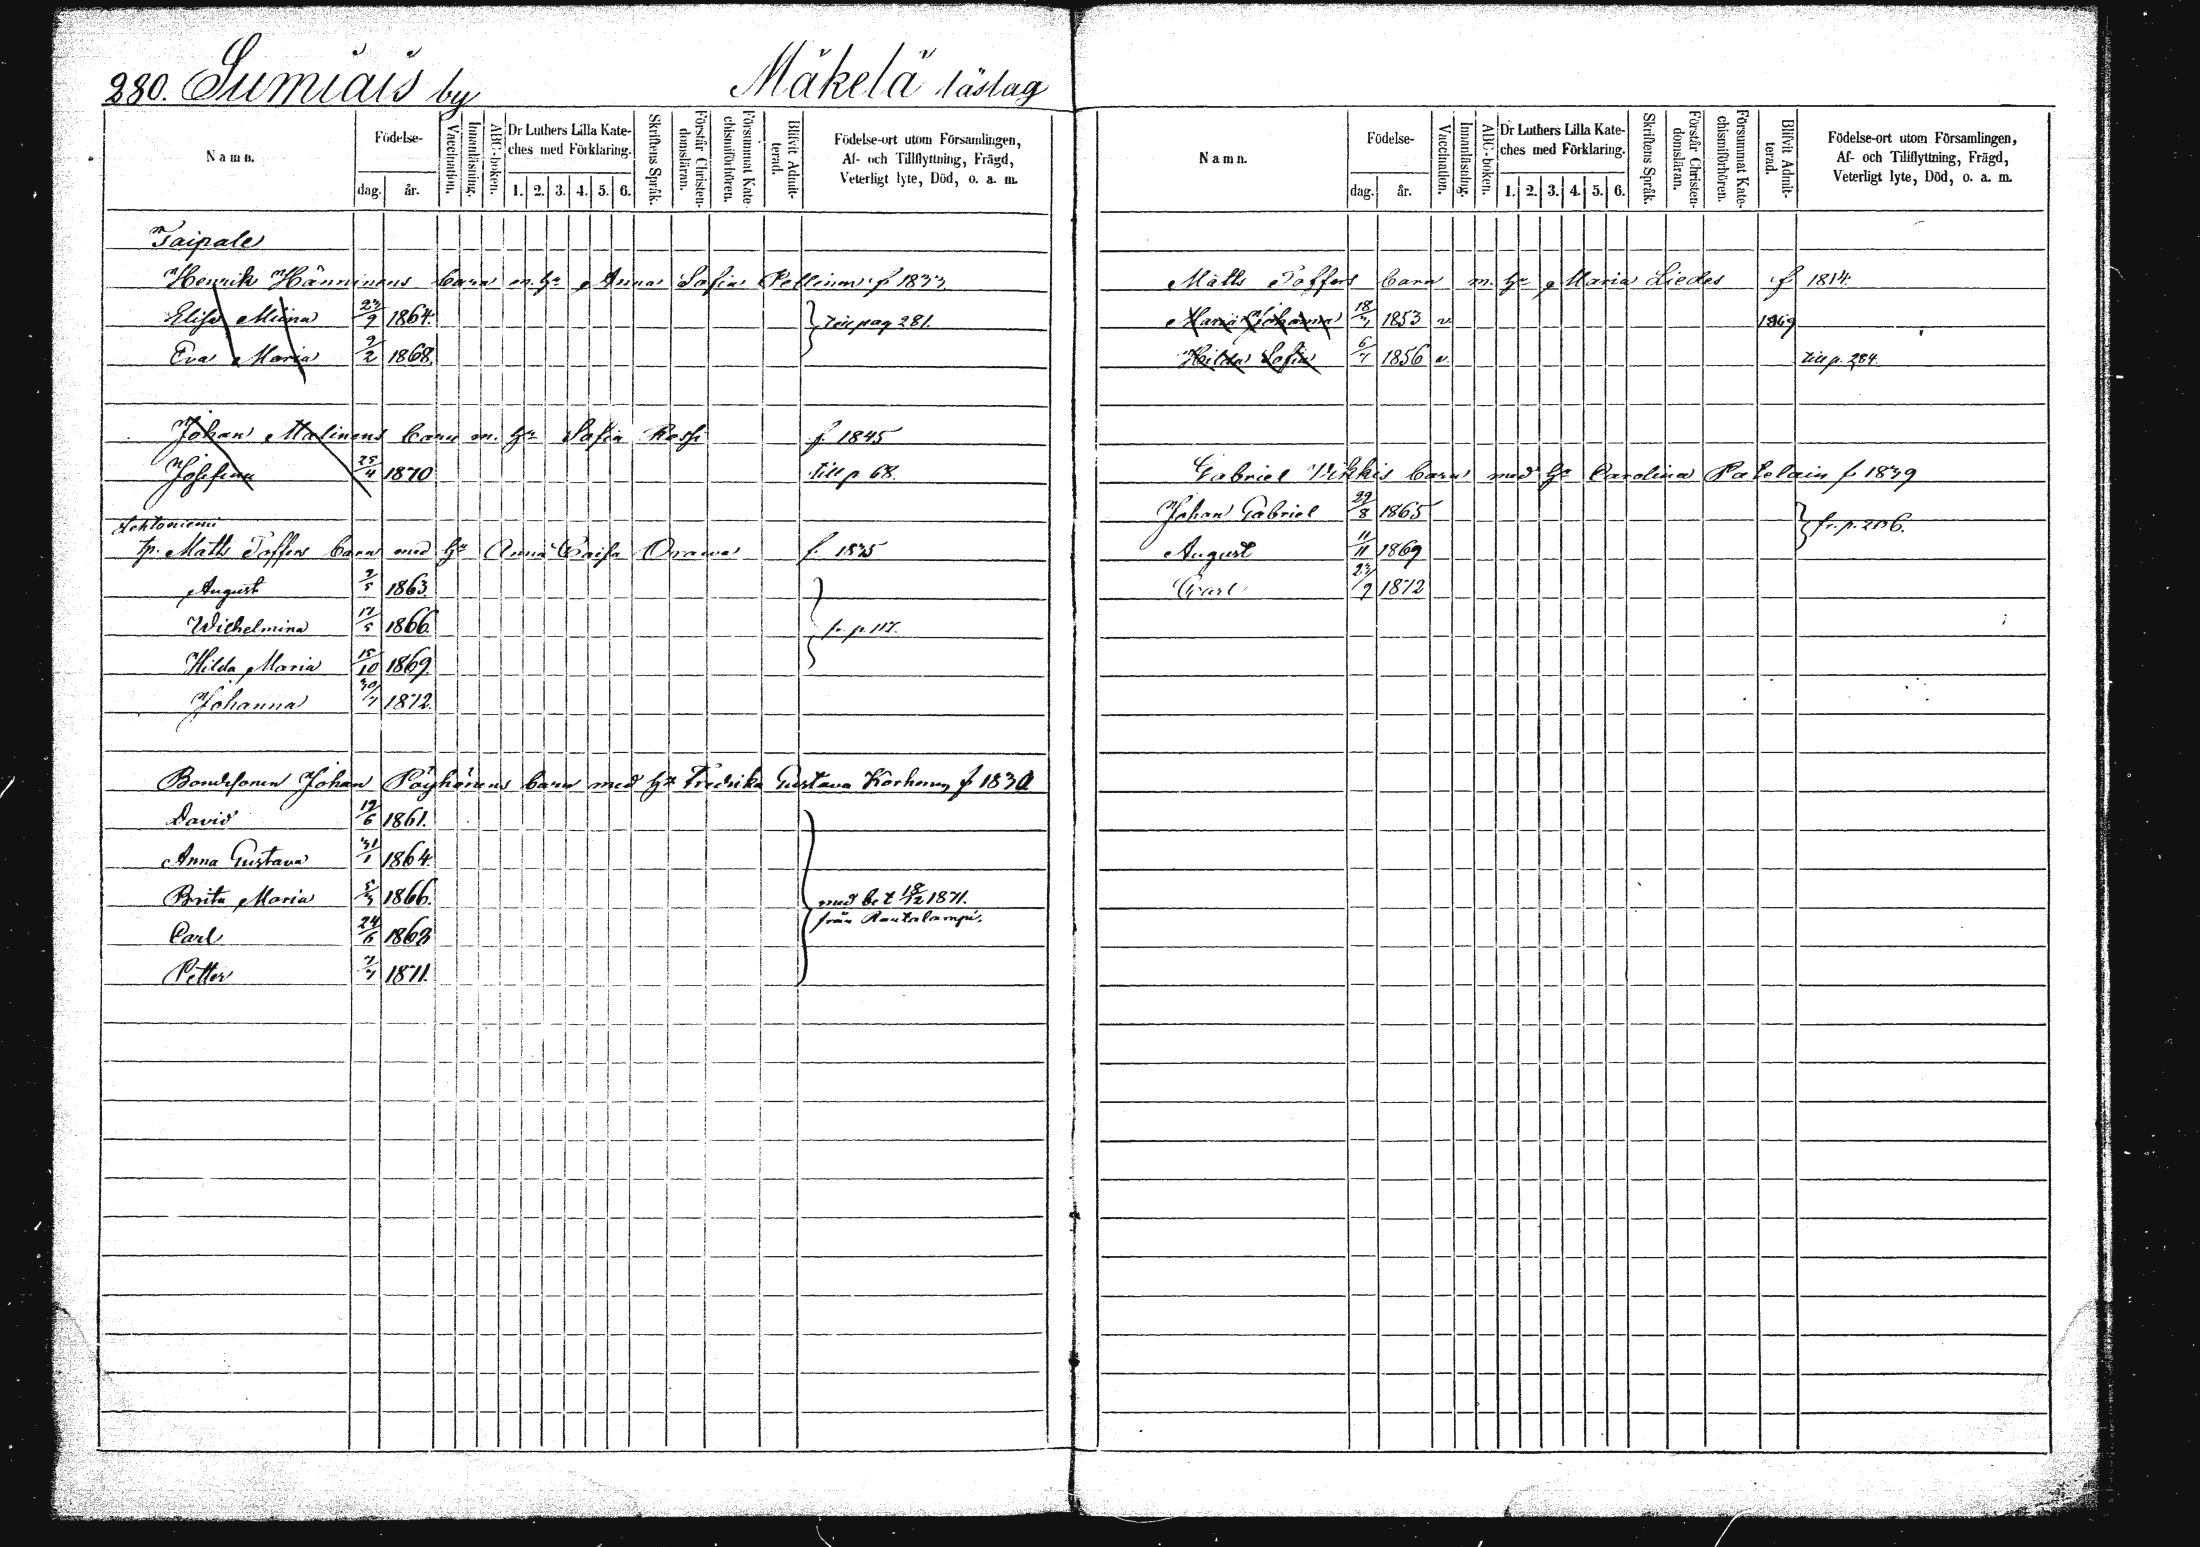 280. Sumiais by Mäkelä läslag
Namn. Födelse- dag. år. Vaccination. Innanläsning. ABC-boken. Dr Luthers Lilla Kateches med Förklaring. 1. 2. 3. 4. 5. 6. Skriftens Språk. Förstår Christendomsläran. Försummat Katechismiförhören. Blifvit Admitterad. Födelse-ort utom Församlingen, Af- och Tillflyttning, Frägd, Veterligt lyte, Död, o. a. m.
Taipale
Henrik Hänninens barn m. hu Anna Sofia Pellinen f 1833
Elisa Miina 23/9 1864. till pag 281.
Eva Maria 2/2 1868.
Johan Malinens barn m. hu Sofia Rossi f. 1845
Josefina 25/4 1870 till p 68.
Lehtoniemi
tp. Matts Toffers barn med hu Anna Caisa Orawa f. 1835
August 7/5 1863.
Wilhelmina 12/5 1866. fr. p. 117.
Hilda Maria 15/10 1869.
Johanna 30/7 1872.
Bondesonen Johan Pöyhönens barn med hu Fredrika Gustava Korhonen f 1830
David 12/6 1861.
Anna Gustava 31/1 1864.
Brita Maria 5/3 1866. med bet 18/12 1871.
från Rautalampi.
Carl 24/6 1868
Petter 7/7 1871.
Namn. Födelse- dag. år. Vaccination. Innanläsning. ABC-boken. Dr Luthers Lilla Kateches med Förklaring. 1. 2. 3. 4. 5. 6. Skriftens Språk. Förstår Christendomsläran. Försummat Katechismiförhören. Blifvit Admitterad. Födelse-ort utom Församlingen, Af- och Tillflyttning, Frägd, Veterligt lyte, Död, o. a. m.
Matts Toffers barn m. hu Maria Liedes f 1814.
Maria Johanna 18/3 1853 v. 1869
Hilda Sofia 6/7 1856 v. till p. 284.
Gabriel Wikkis barn med hu Carolina Patelain f 1839
Johan Gabriel 29/8 1865 fr. p. 206.
August 11/11 1869
Carl 23/9 1872